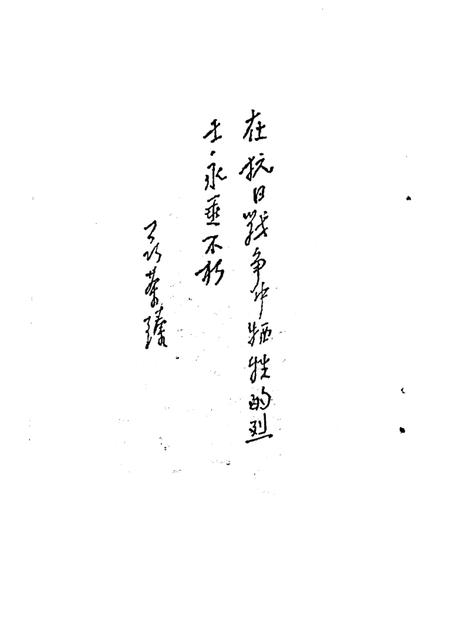 在抗日戰争中牺牲的烈
士永垂不朽
聂荣臻